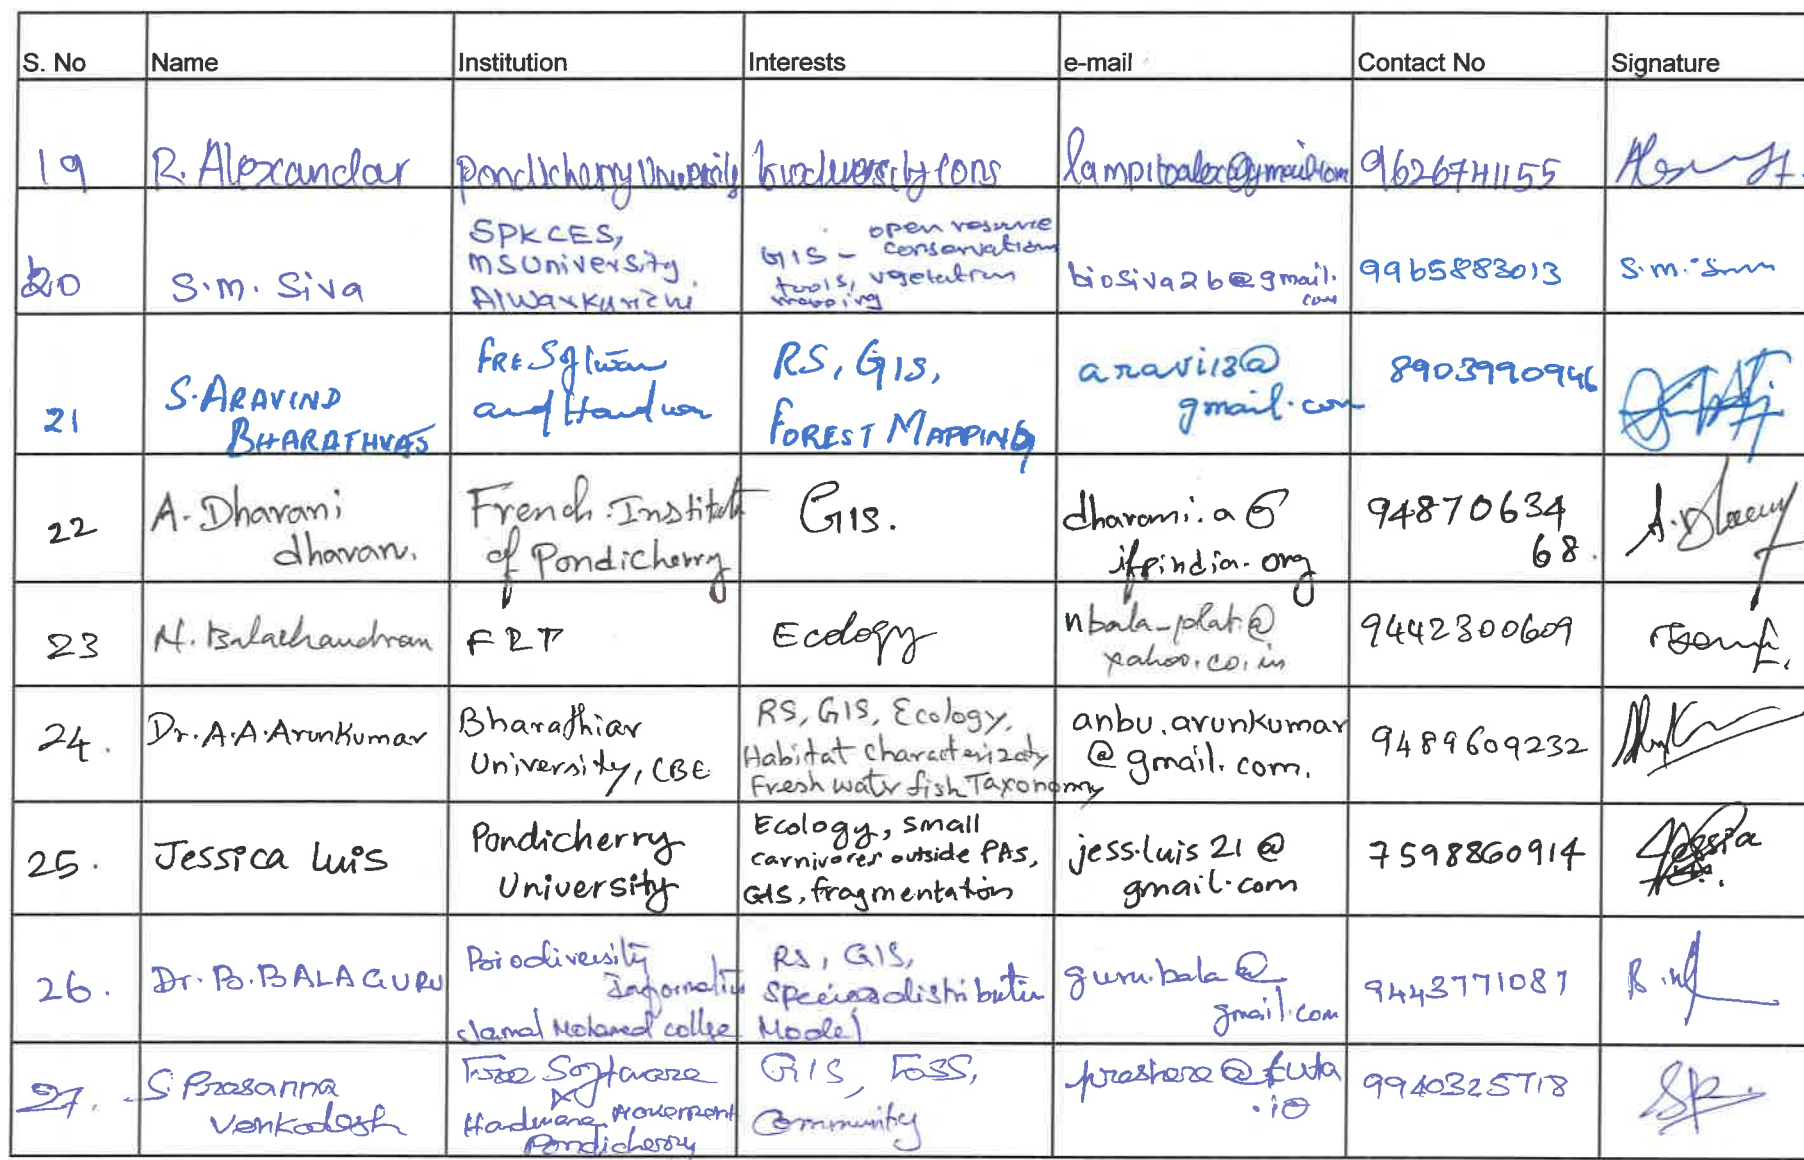 S. No Name Institution Interests e-mail Contact No Signature
19 R. Alexandar Pondicherry University 9626741155
20 S.M. Siva
SPKCES,
MSUniversity
Alwarkurichi
GIS - open resource
conservation
tools, vegetation
mapping
biosiva2b@gmail.
com
9965883013
21 S. ARAVIND
BHARATHVAS
FREE Software
and Hardware
RS, GIS,
FOREST MAPPING
aravi13@
gmail.com
8903990946
22 A. Dharani
dharan.
French Institute
of Pondicherry
GIS.
dharani.a@
ifpindia.org
94870634
68.
23 N. Balachandran
Ecology
9442300609
24. Dr. A.A. ArunKumar
Bharathiar
University, CBE
RS, GIS, Ecology,
Habitat Characterizaty
Fresh water fish Taxonomy
anbu.arunkumar
@gmail.com.
9489609232
25. Jessica Luis
Pondicherry
University
Ecology, small
carnivores outside PAs,
GIS, fragmentation
jess.luis21@
gmail.com
7598860914
26. Dr. B. BALAGURU
Biodiversity
Informatics
Jamal Mohamed college
RS, GIS,
Species distribution
Model
guru.bala@
gmail.com
9443771087
27. S Prasanna
Venkadesh
Free Software
Hardware Movement
Pondicherry
GIS, FOSS,
Community
9940325718